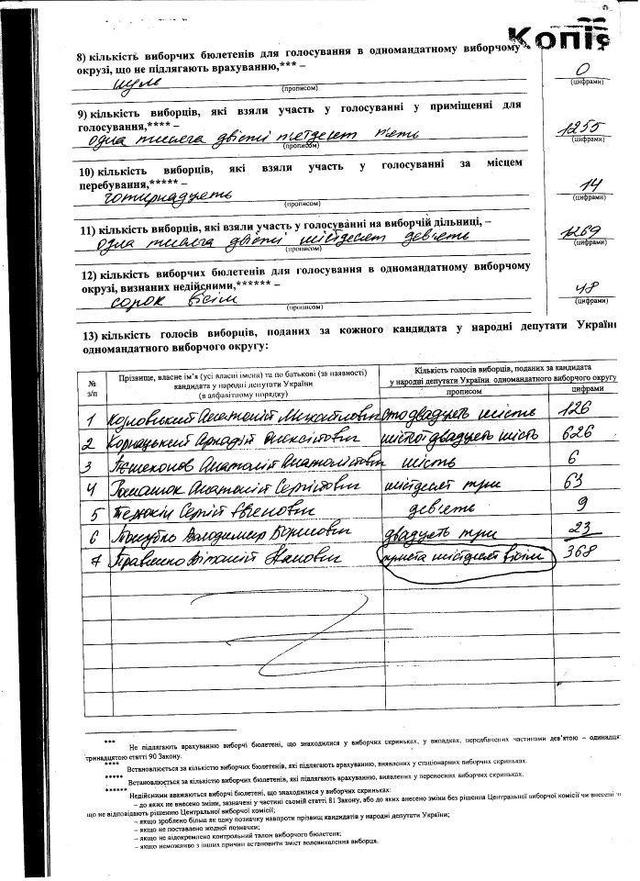 Копіє
8) кількість виборчих бюлетенів для голосування в одномандатному виборчому
окрузі, що не підлягають врахуванню,*** –
нуль
0
(прописом)
(цифрами)
9) кількість виборців, які взяли участь у голосуванні у приміщенні для
голосування,**** –
одна тисяча двісті п'ятдесят п'ять
1255
(прописом)
(цифрами)
10) кількість виборців, які взяли участь у голосуванні за місцем
перебування,***** –
чотирнадцять
14
(прописом)
(цифрами)
11) кількість виборців, які взяли участь у голосуванні на виборчій дільниці, –
одна тисяча двісті шістдесят дев'ять
1269
(прописом)
(цифрами)
12) кількість виборчих бюлетенів для голосування в одномандатному виборчому
окрузі, визнаних недійсними,****** –
сорок вісім
48
(прописом)
(цифрами)
13) кількість голосів виборців, поданих за кожного кандидата у народні депутати Україні
одномандатного виборчого округу:
№ з/п
Прізвище, власне ім'я (усі власні імена) та по батькові (за наявності)
кандидата у народні депутати України
(в алфавітному порядку)
Кількість голосів виборців, поданих за кандидата
у народні депутати України одномандатного виборчого округу
прописом
цифрами
1 Козловський Анатолій Михайлович сто двадцять шість 126
2 Корнацький Аркадій Олексійович шістсот двадцять шість 626
3 Анатолій Анатолійович шість 6
4 Анатолій Сергійович шістдесят три 63
5 Сергій Євгенович дев'ять 9
6 Володимир Борисович двадцять три 23
7 Травленко Віталій Іванович триста шістдесят вісім 368
*** Не підлягають врахуванню виборчі бюлетені, що знаходилися у виборчих скриньках, у випадках, передбачених частинами дев'ятою – одинадця
тринадцятою статті 90 Закону.
**** Встановлюється за кількістю виборчих бюлетенів, які підлягають врахуванню, виявлених у стаціонарних виборчих скриньках.
***** Встановлюється за кількістю виборчих бюлетенів, які підлягають врахуванню, виявлених у переносних виборчих скриньках.
****** Недійсними вважаються виборчі бюлетені, що знаходилися у виборчих скриньках:
– до яких не внесено зміни, зазначені у частині сьомій статті 81 Закону, або до яких внесені зміни без рішення Центральної виборчої комісії чи внесені
що не відповідають рішенню Центральної виборчої комісії;
– якщо зроблено більш як одну позначку навпроти прізвищ кандидатів у народні депутати України;
– якщо не поставлено жодної позначки;
– якщо не відокремлено контрольний талон виборчого бюлетеня;
– якщо неможливо з інших причин встановити зміст волевиявлення виборця.